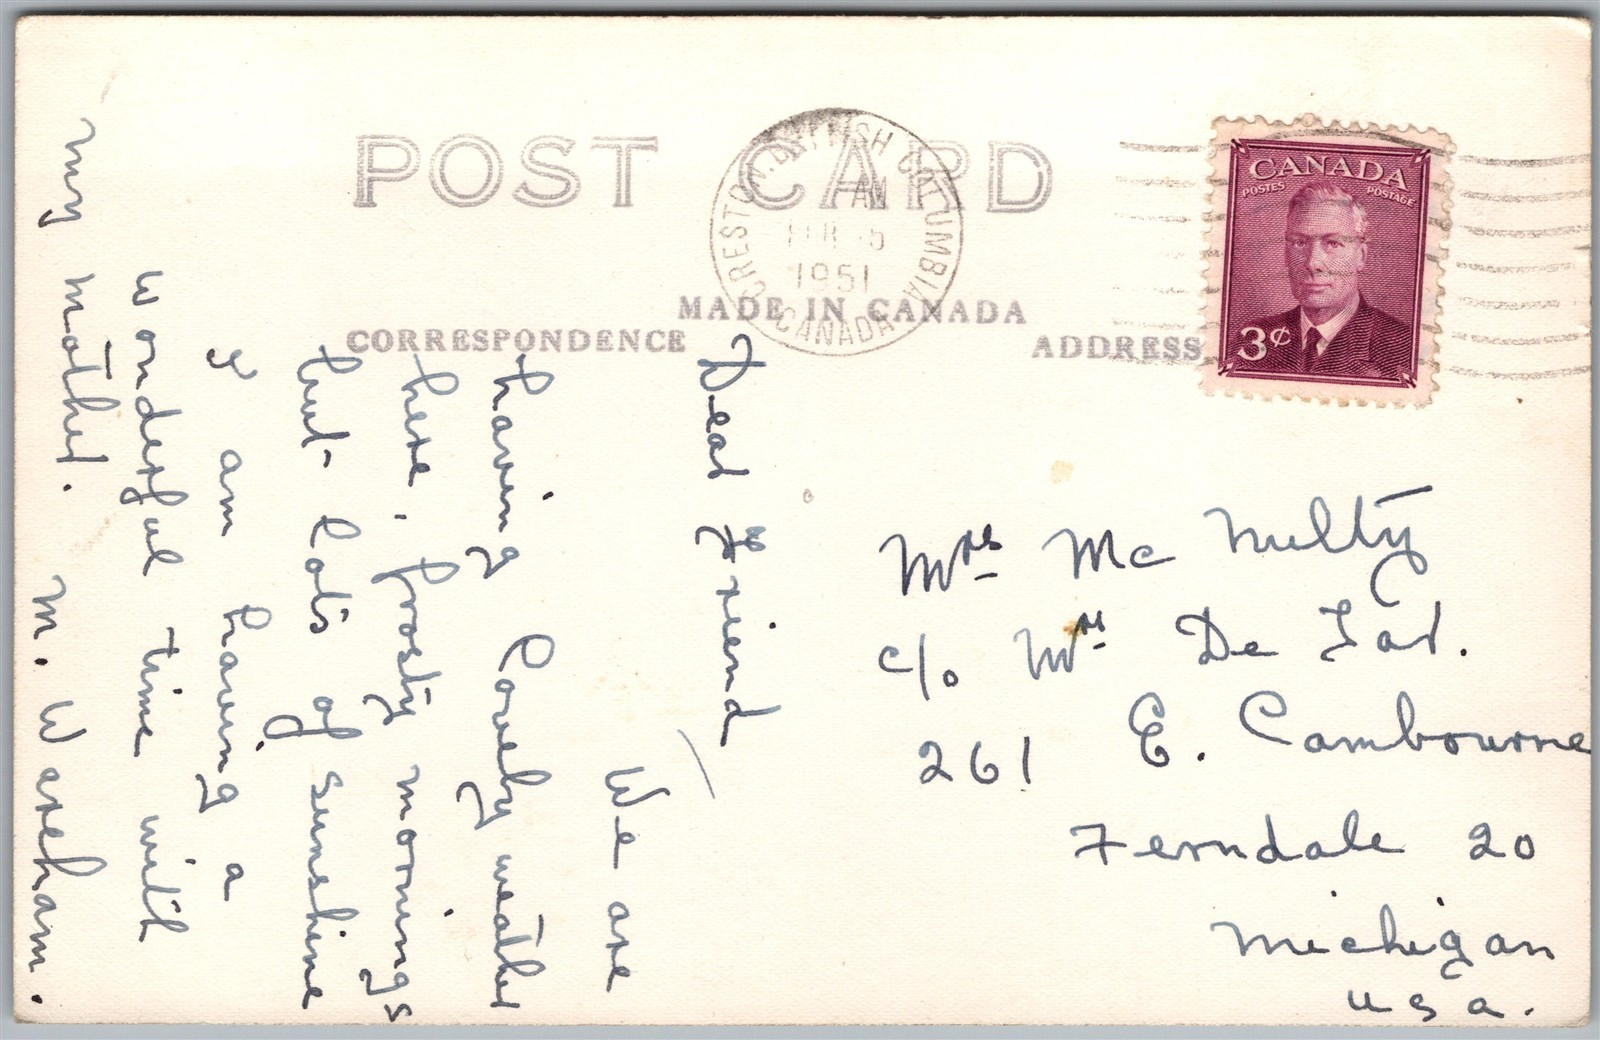 POST CARD
CRESTON, BRITISH COLUMBIA
AM
1951
CANADA
MADE IN CANADA
CORRESPONDENCE
ADDRESS
CANADA
POSTES POSTAGE
3¢
Dear Friend
We are
having lovely weather
here, frosty mornings
but lots of sunshine
I am having a
wonderful time with
my mother. M. Wareham.
Mrs Mc Nulty
c/o Mrs De
261 E. Cambourne
Ferndale 20
Michigan
USA.